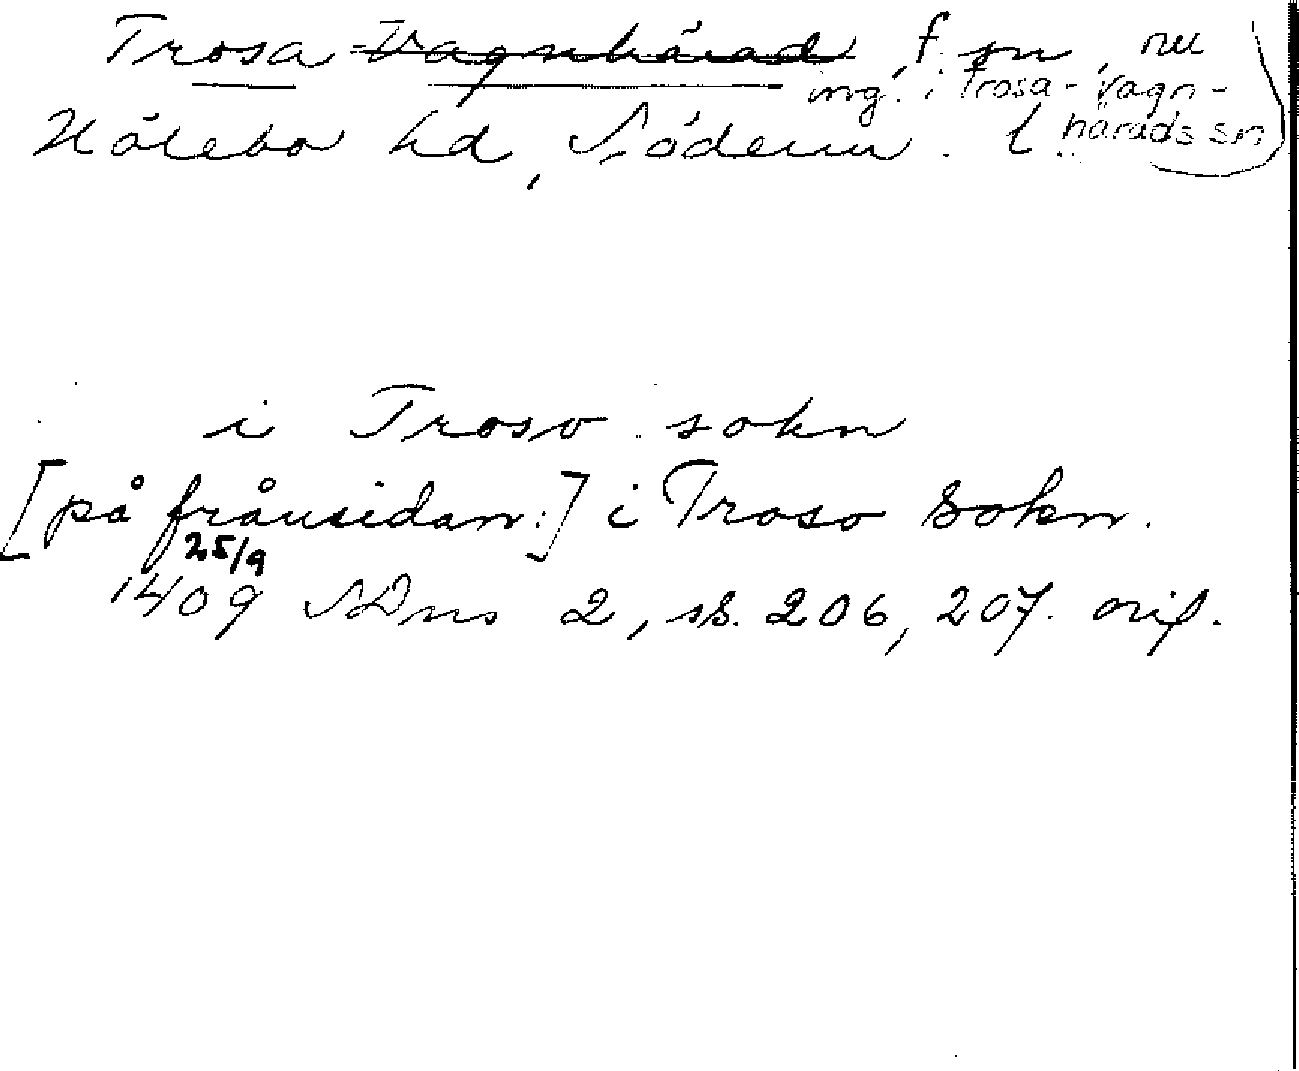 Trosa Vagnhärad, f. sn, nu
ing. i Trosa-Vagn-
Hölebo hd, Söderm. l häradssn
i Troso sokn
[på frånsidan:] i Troso Sokn.
25/9
1409 SDns 2, ss. 206, 207. orig.